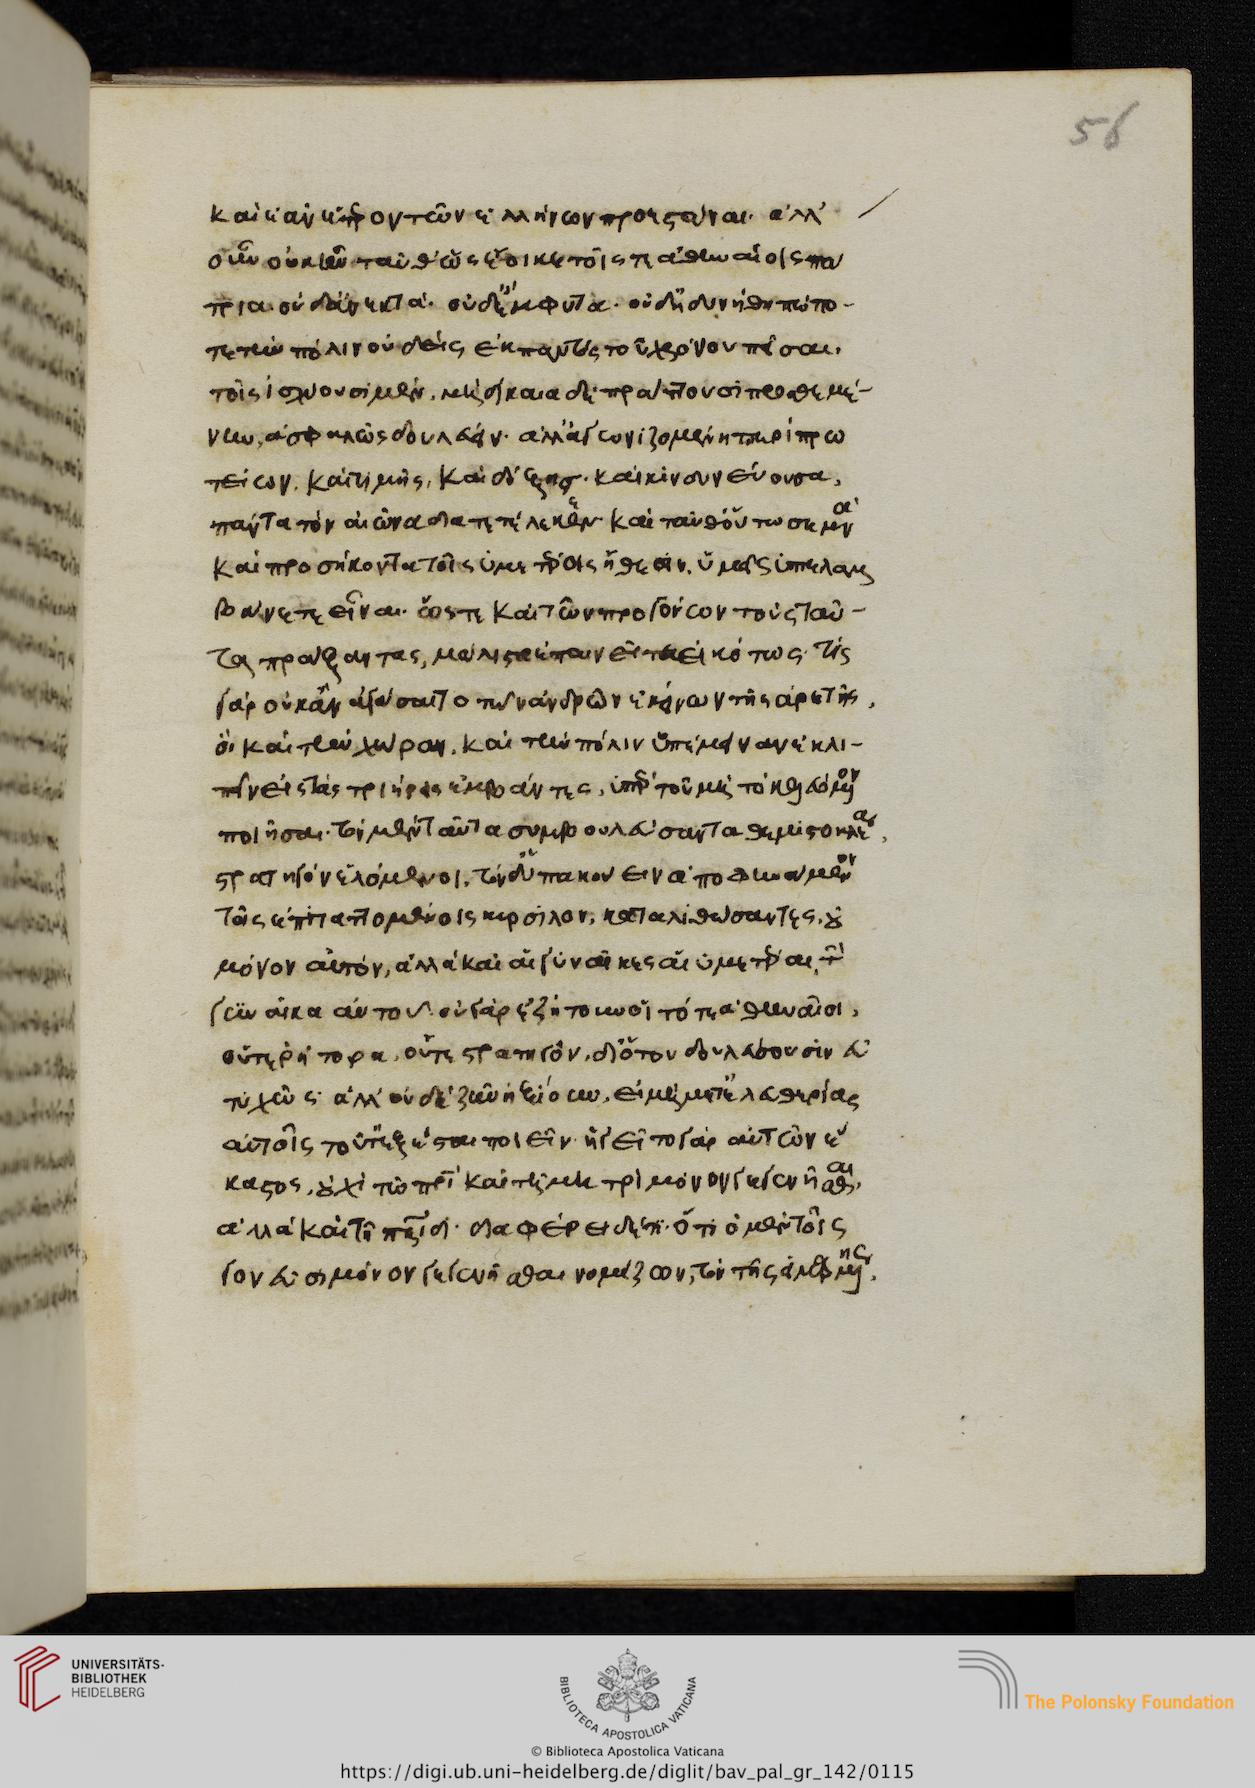 56
καὶ κἂν ἕτερον τῶν ἑλλήνων προεστάναι. ἀλλ'
οὐκ ἦν ταῦθ' ὡς ἔοικε τοῖς τότε ἀθηναίοις πά
τρια. οὐδ' ἀνεκτά. οὐδ' ἔμφυτα. οὐδ' ἠδυνήθη πώπο-
τε τὴν πόλιν οὐδεὶς ἐκ παντὸς τοῦ χρόνου πεῖσαι,
τοῖς ἰσχύουσι μὲν, μὴ δίκαια δὲ πράττουσι προσθεμέ-
νην, ἀσφαλῶς δουλεύειν. ἀλλ' ἀγωνιζομένη περὶ πρω
τείων, καὶ τιμῆς, καὶ δόξης. καὶ κινδυνεύουσα,
πάντα τὸν αἰῶνα διατετέλεκεν. καὶ ταῦθ' οὕτω σεμνὰ
καὶ προσήκοντα τοῖς ὑμετέροις ἤθεσιν, ὑμεῖς ὑπολαμ
βάνετε εἶναι. ὥστε καὶ τῶν προγόνων τοὺς ταῦ-
τα πράξαντας, μάλιστ' ἐπαινεῖτε εἰκότως. τίς
γὰρ οὐκ ἂν ἀγάσαιτο τῶν ἀνδρῶν ἐκείνων τῆς ἀρετῆς,
οἳ καὶ τὴν χώραν, καὶ τὴν πόλιν ὑπέμειναν ἐκλι-
πεῖν εἰς τὰς τριήρεις ἐμβάντες, ὑπὲρ τοῦ μὴ τὸ κελευόμενον
ποιῆσαι. τὸν μὲν ταῦτα συμβουλεύσαντα θεμιστοκλέα,
στρατηγὸν ἑλόμενοι, τὸν δ' ὑπακούειν ἀποφηνάμενον
τοῖς ἐπιταττομένοις κυρσίλον, καταλιθώσαντες, οὐ
μόνον αὐτὸν, ἀλλὰ καὶ αἱ γυναῖκες αἱ ὑμέτεραι, τὴν
γυναῖκα αὐτοῦ. οὐ γὰρ ἐζήτουν οἱ τότε ἀθηναῖοι,
οὔτε ῥήτορα, οὔτε στρατηγὸν, δι' ὅτου δουλεύσουσιν εὐ
τυχῶς. ἀλλ' οὐδὲ ζῆν ἠξίουν, εἰ μὴ μετ' ἐλευθερίας
αὐτοῖς τοῦτ' ἐξέσται ποιεῖν. ἡγεῖτο γὰρ αὐτῶν ἕ
καστος, οὐχὶ τῶ πατρὶ καὶ τῆ μητρὶ μόνον γεγενῆσθαι,
ἀλλὰ καὶ τῆ πατρίδι. διαφέρει δὲ τί. ὅτι ὁ μὲν τοῖς
γονεῦσι μόνον γεγενῆσθαι νομίζων, τὸν τῆς εἱμαρμένης,
UNIVERSITÄTS-
BIBLIOTHEK
HEIDELBERG
BIBLIOTECA APOSTOLICA VATICANA
The Polonsky Foundation
© Biblioteca Apostolica Vaticana
https://digi.ub.uni-heidelberg.de/diglit/bav_pal_gr_142/0115